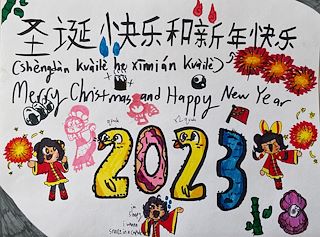 圣诞快乐和新年快乐
(shèngdàn kvàilè he xīnnián kvàilè)
Merry Christmas and Happy New Year
2023